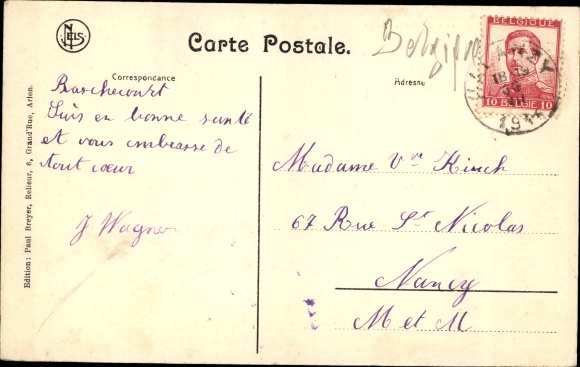 NELS
Carte Postale.
Belgique
BELGIQUE
10 BELGIË 10
HALANZY
1914
Correspondance
Adresse
Suis en bonne santé
et vous embrasse de
tout cœur
J Wagner
Madame Vve Kinch
67 Rue St Nicolas
Nancy
M et M
Edition : Paul Breyer, Relieur, 6, Grand'Rue, Arlon.